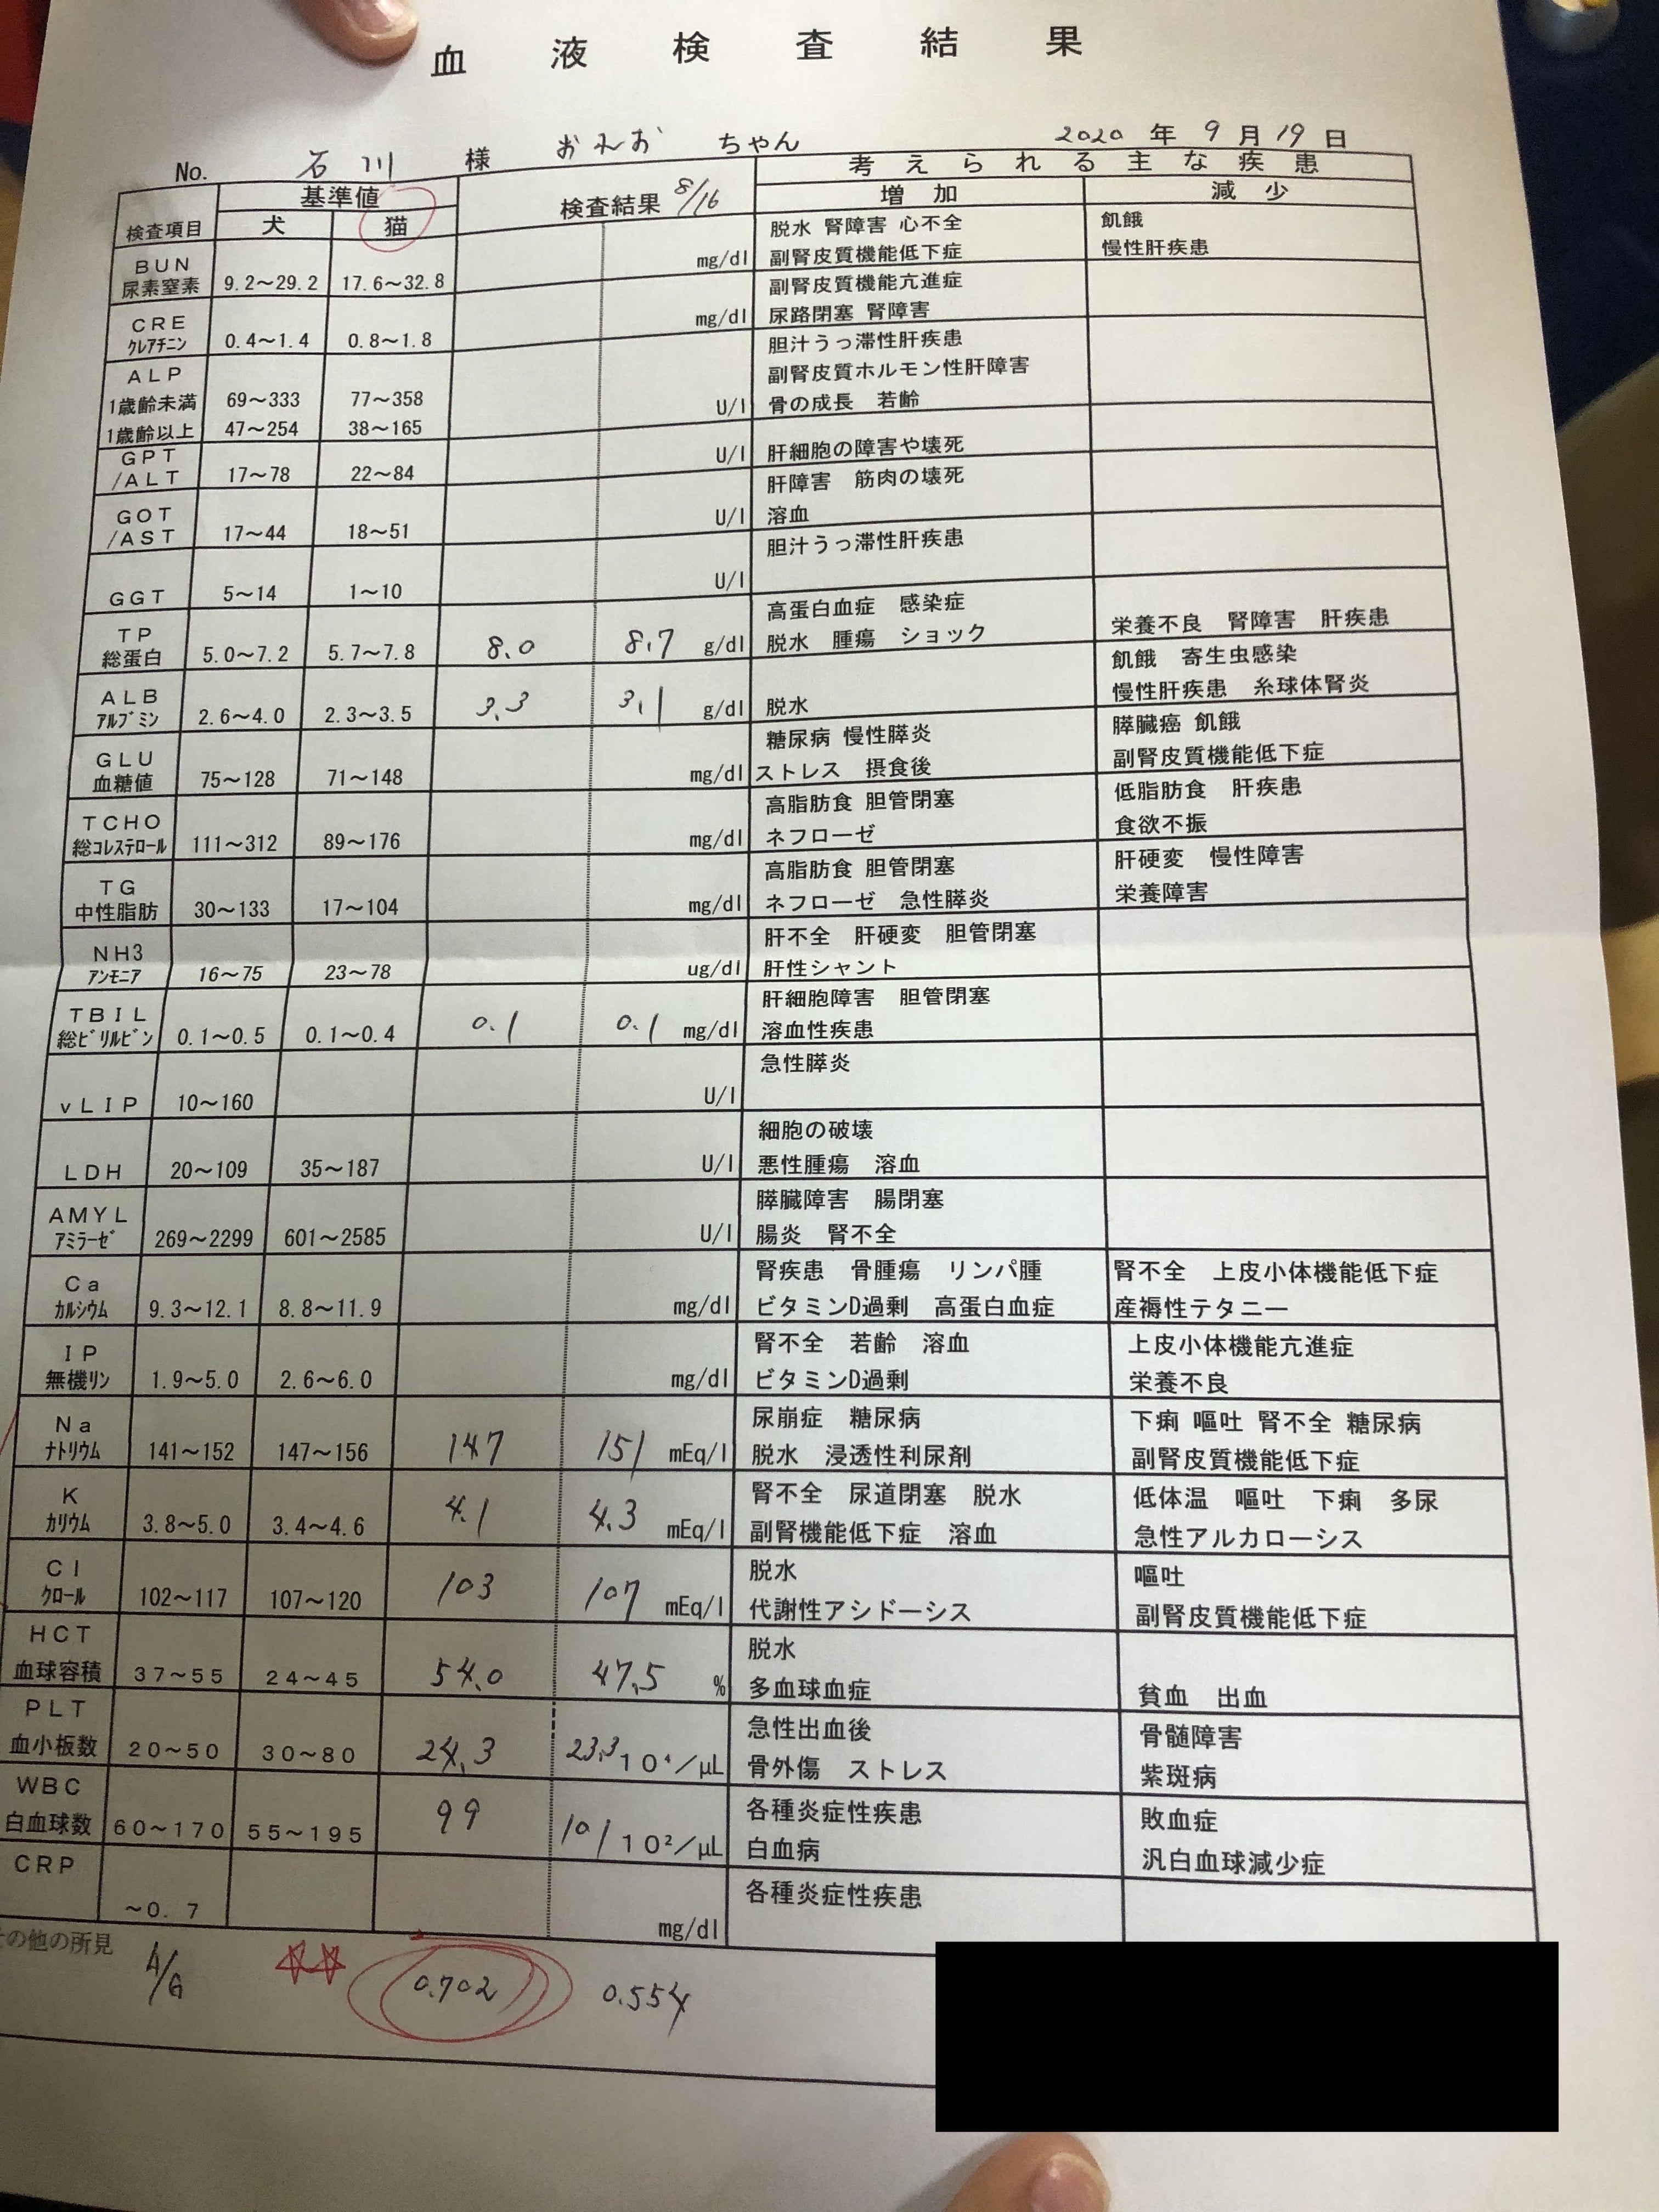 血液検査結果
No. 石川 様 おれお ちゃん 2020 年 9 月 19 日
検査項目 基準値 検査結果 8/16 考えられる主な疾患
犬 猫 増加 減少
BUN 尿素窒素 9.2～29.2 17.6～32.8 mg/dl 脱水 腎障害 心不全 副腎皮質機能低下症 飢餓 慢性肝疾患
CRE クレアチニン 0.4～1.4 0.8～1.8 mg/dl 副腎皮質機能亢進症 尿路閉塞 腎障害
ALP 胆汁うっ滞性肝疾患
1歳齢未満 69～333 77～358 U/l 副腎皮質ホルモン性肝障害
1歳齢以上 47～254 38～165 骨の成長 若齢
GPT /ALT 17～78 22～84 U/l 肝細胞の障害や壊死
GOT /AST 17～44 18～51 U/l 肝障害 筋肉の壊死 溶血
GGT 5～14 1～10 U/l 胆汁うっ滞性肝疾患
TP 総蛋白 5.0～7.2 5.7～7.8 8.0 8.7 g/dl 高蛋白血症 感染症 脱水 腫瘍 ショック 栄養不良 腎障害 肝疾患
ALB アルブミン 2.6～4.0 2.3～3.5 3.3 3.1 g/dl 脱水 飢餓 寄生虫感染 慢性肝疾患 糸球体腎炎
GLU 血糖値 75～128 71～148 mg/dl 糖尿病 慢性膵炎 ストレス 摂食後 膵臓癌 飢餓 副腎皮質機能低下症
TCHO 総コレステロール 111～312 89～176 mg/dl 高脂肪食 胆管閉塞 ネフローゼ 低脂肪食 肝疾患 食欲不振
TG 中性脂肪 30～133 17～104 mg/dl 高脂肪食 胆管閉塞 ネフローゼ 急性膵炎 肝硬変 慢性障害 栄養障害
NH3 アンモニア 16～75 23～78 ug/dl 肝不全 肝硬変 胆管閉塞 肝性シャント
TBIL 総ビリルビン 0.1～0.5 0.1～0.4 0.1 0.1 mg/dl 肝細胞障害 胆管閉塞 溶血性疾患
vLIP 10～160 U/l 急性膵炎
LDH 20～109 35～187 U/l 細胞の破壊 悪性腫瘍 溶血
AMYL アミラーゼ 269～2299 601～2585 U/l 膵臓障害 腸閉塞 腸炎 腎不全
Ca カルシウム 9.3～12.1 8.8～11.9 mg/dl 腎疾患 骨腫瘍 リンパ腫 ビタミンD過剰 高蛋白血症 腎不全 上皮小体機能低下症 産褥性テタニー
IP 無機リン 1.9～5.0 2.6～6.0 mg/dl 腎不全 若齢 溶血 ビタミンD過剰 上皮小体機能亢進症 栄養不良
Na ナトリウム 141～152 147～156 147 151 mEq/l 尿崩症 糖尿病 脱水 浸透性利尿剤 下痢 嘔吐 腎不全 糖尿病 副腎皮質機能低下症
K カリウム 3.8～5.0 3.4～4.6 4.1 4.3 mEq/l 腎不全 尿道閉塞 脱水 副腎機能低下症 溶血 低体温 嘔吐 下痢 多尿 急性アルカローシス
Cl クロール 102～117 107～120 103 107 mEq/l 脱水 代謝性アシドーシス 嘔吐 副腎皮質機能低下症
HCT 血球容積 37～55 24～45 54.0 47.5 % 脱水 多血球血症 貧血 出血
PLT 血小板数 20～50 30～80 24.3 23.3 10⁴/μL 急性出血後 骨外傷 ストレス 骨髄障害 紫斑病
WBC 白血球数 60～170 55～195 99 101 10²/μL 各種炎症性疾患 白血病 敗血症 汎白血球減少症
CRP ～0.7 mg/dl 各種炎症性疾患
の他の所見
A/G 0.702 0.554